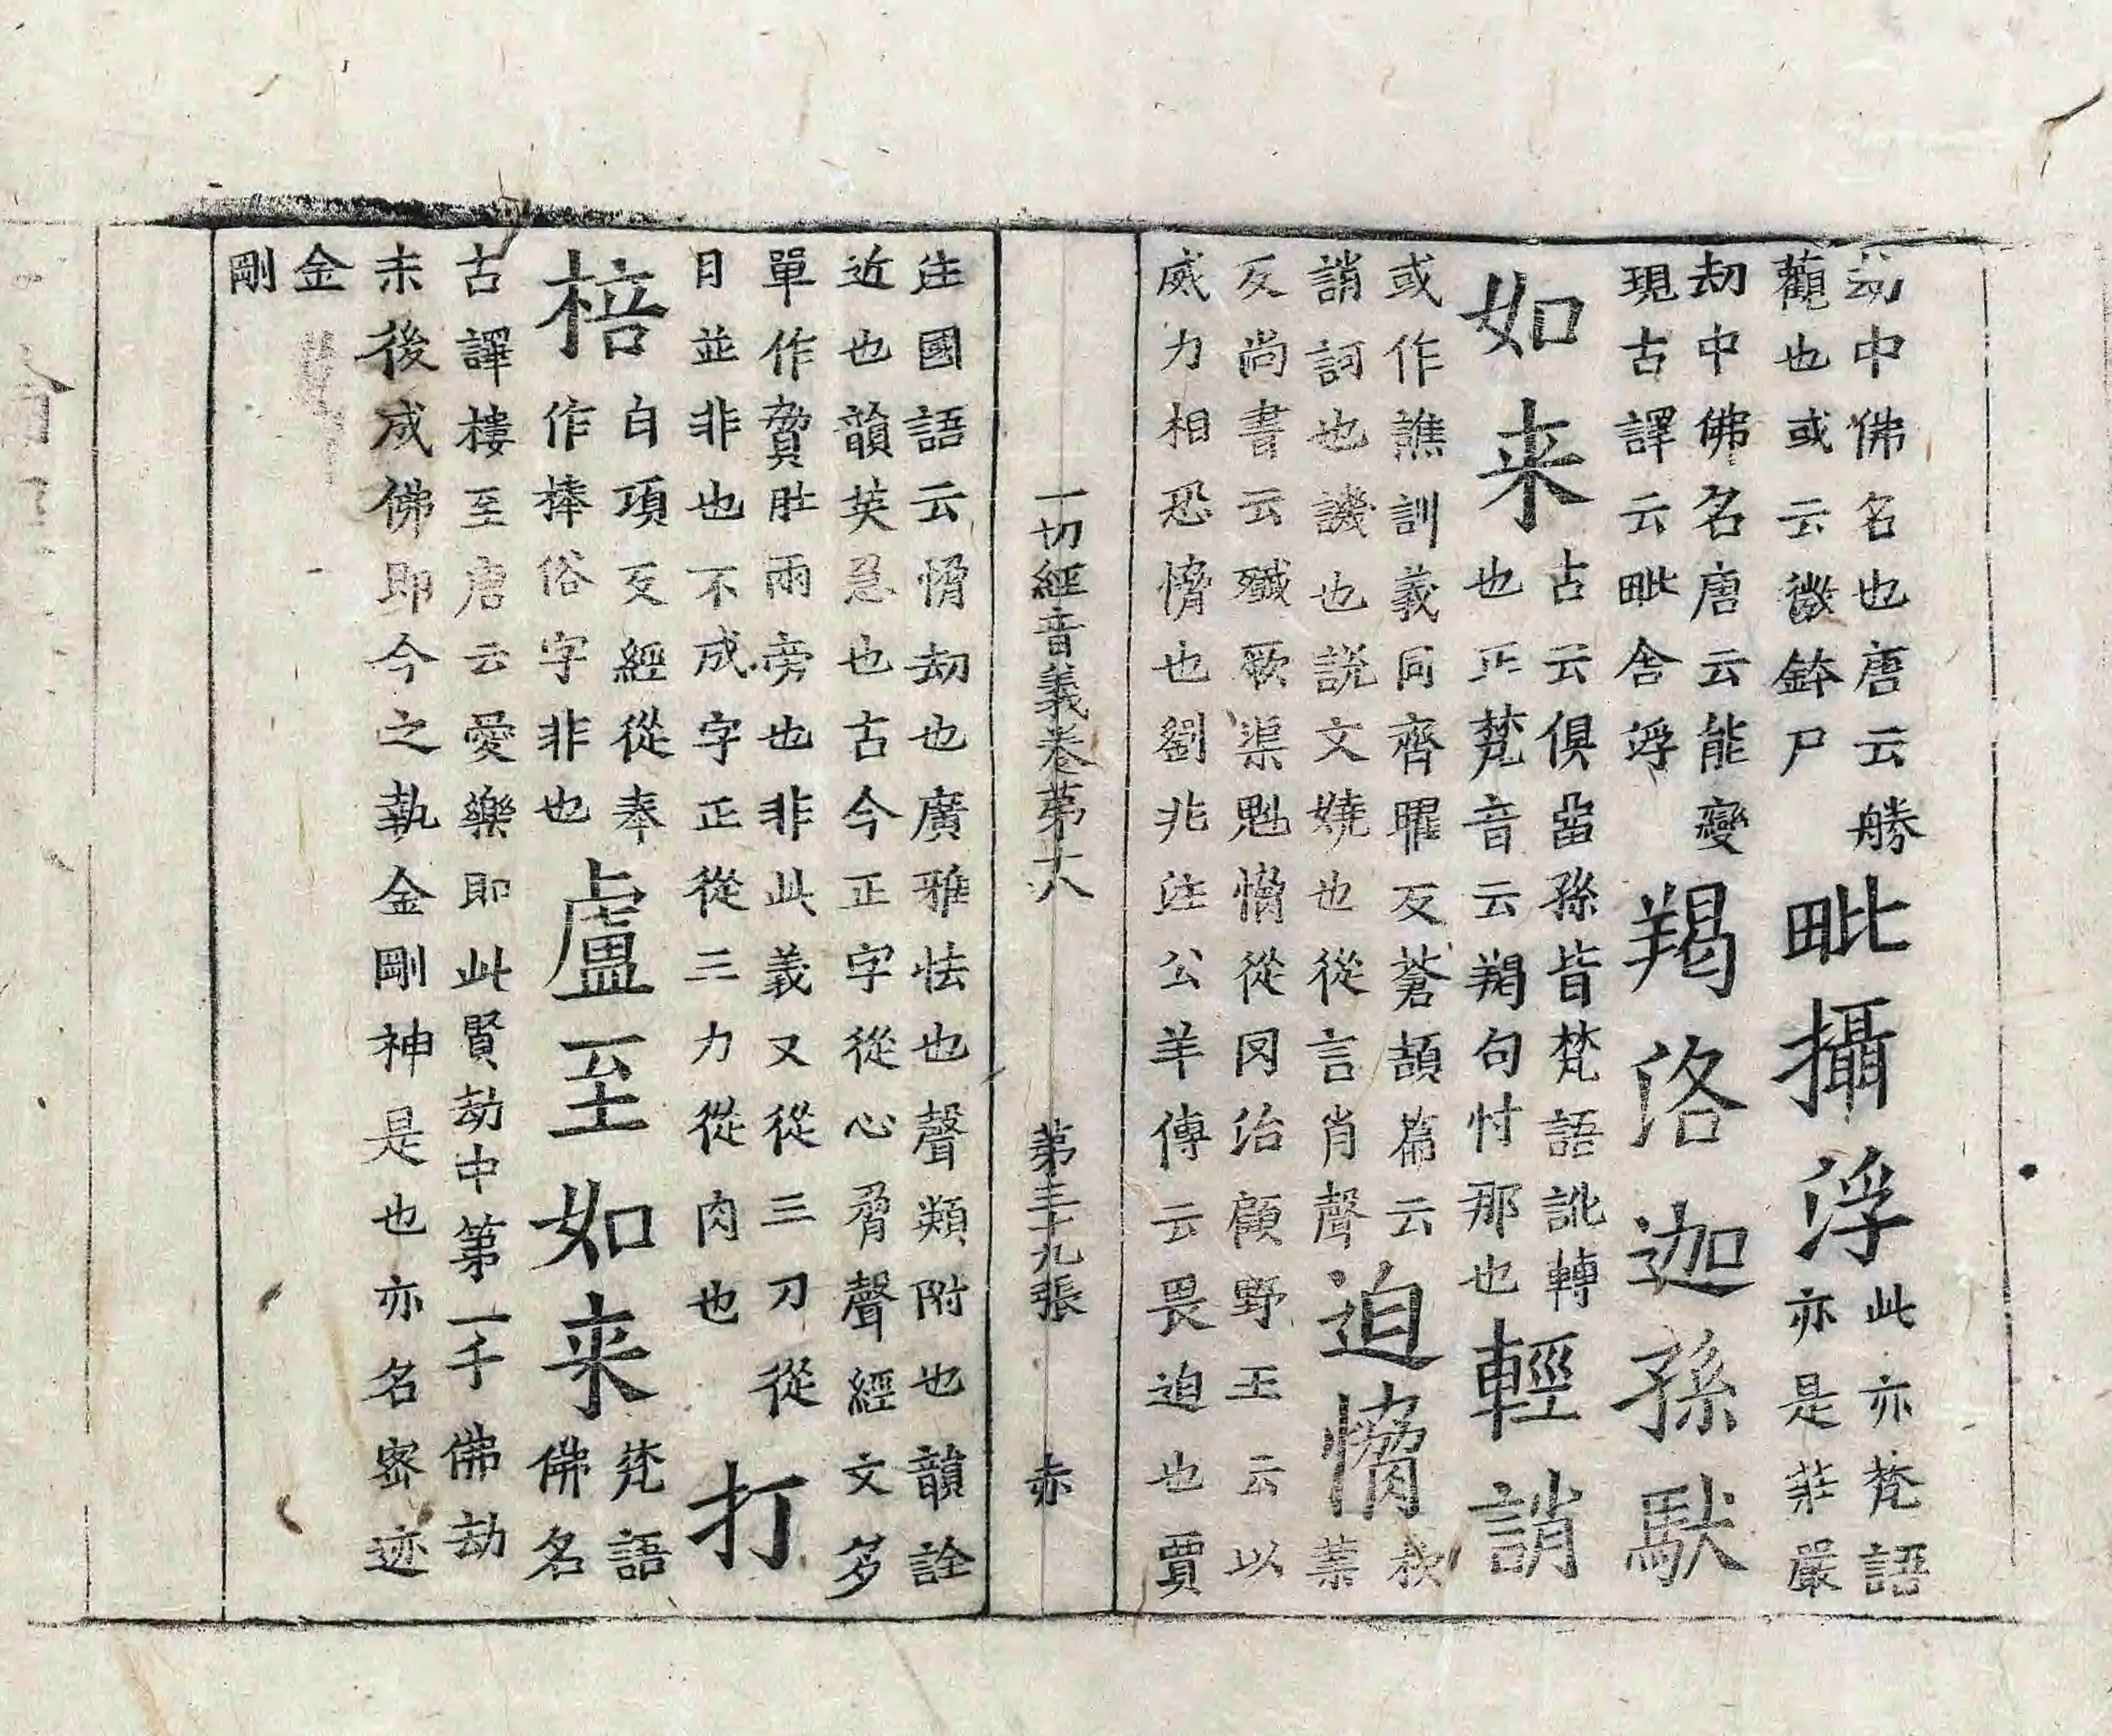 劫中佛名也唐云勝觀也或云微鉢尸毗攝浮此亦梵語亦是莊嚴
劫中佛名唐云能變現古譯云毗舍浮羯洛迦孫馱
如来古云俱留孫皆梵語訛轉也正梵音云羯句忖那也輕誚
或作譙訓義同齊曜反蒼頡篇云誚訶也譏也説文嬈也從言肖聲迫愶杴業
反尚書云殲厥渠魁愶從罔治顧野王云以威力相恐愶也劉兆注公羊傳云畏迫也賈
一切經音義卷第十八 第三十九張 赤
注國語云愶劫也廣雅怯也聲類附也韻詮近也韻英急也古今正字從心脅聲經文多
單作脅肚兩旁也非此義又從三刀從目並非也不成字正從三力從肉也打
棓白項反經從奉作棒俗字非也盧至如来梵語佛名
古譯樓至唐云愛樂即此賢劫中第一千佛劫末後成佛即今之執金剛神是也亦名密迹
金剛